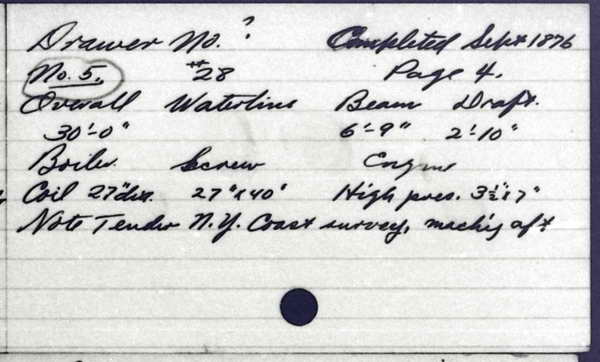 Drawer No. ? Completed Sept 1876
No. 5. #28 Page 4.
Overall Waterline Beam Draft.
30'-0" 6'-9" 2'-10"
Boiler Screw Engine
Coil 27"dia. 27"x40" High pres. 3½"x7"
Note Tender N.Y. Coast survey, mach'y aft